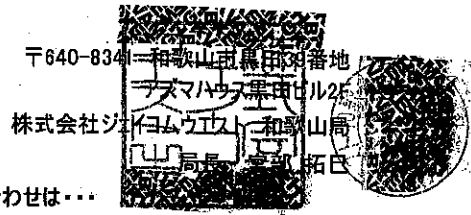 〒640-8341 和歌山市黒田39番地
アズマハウス黒田ビル2F
株式会社ジェイコムウエスト 和歌山局
局長 宮部 拓巳
わせは・・・